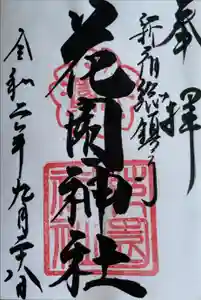 奉拝
新宿総鎮守
花園神社
令和二年九月二十八日